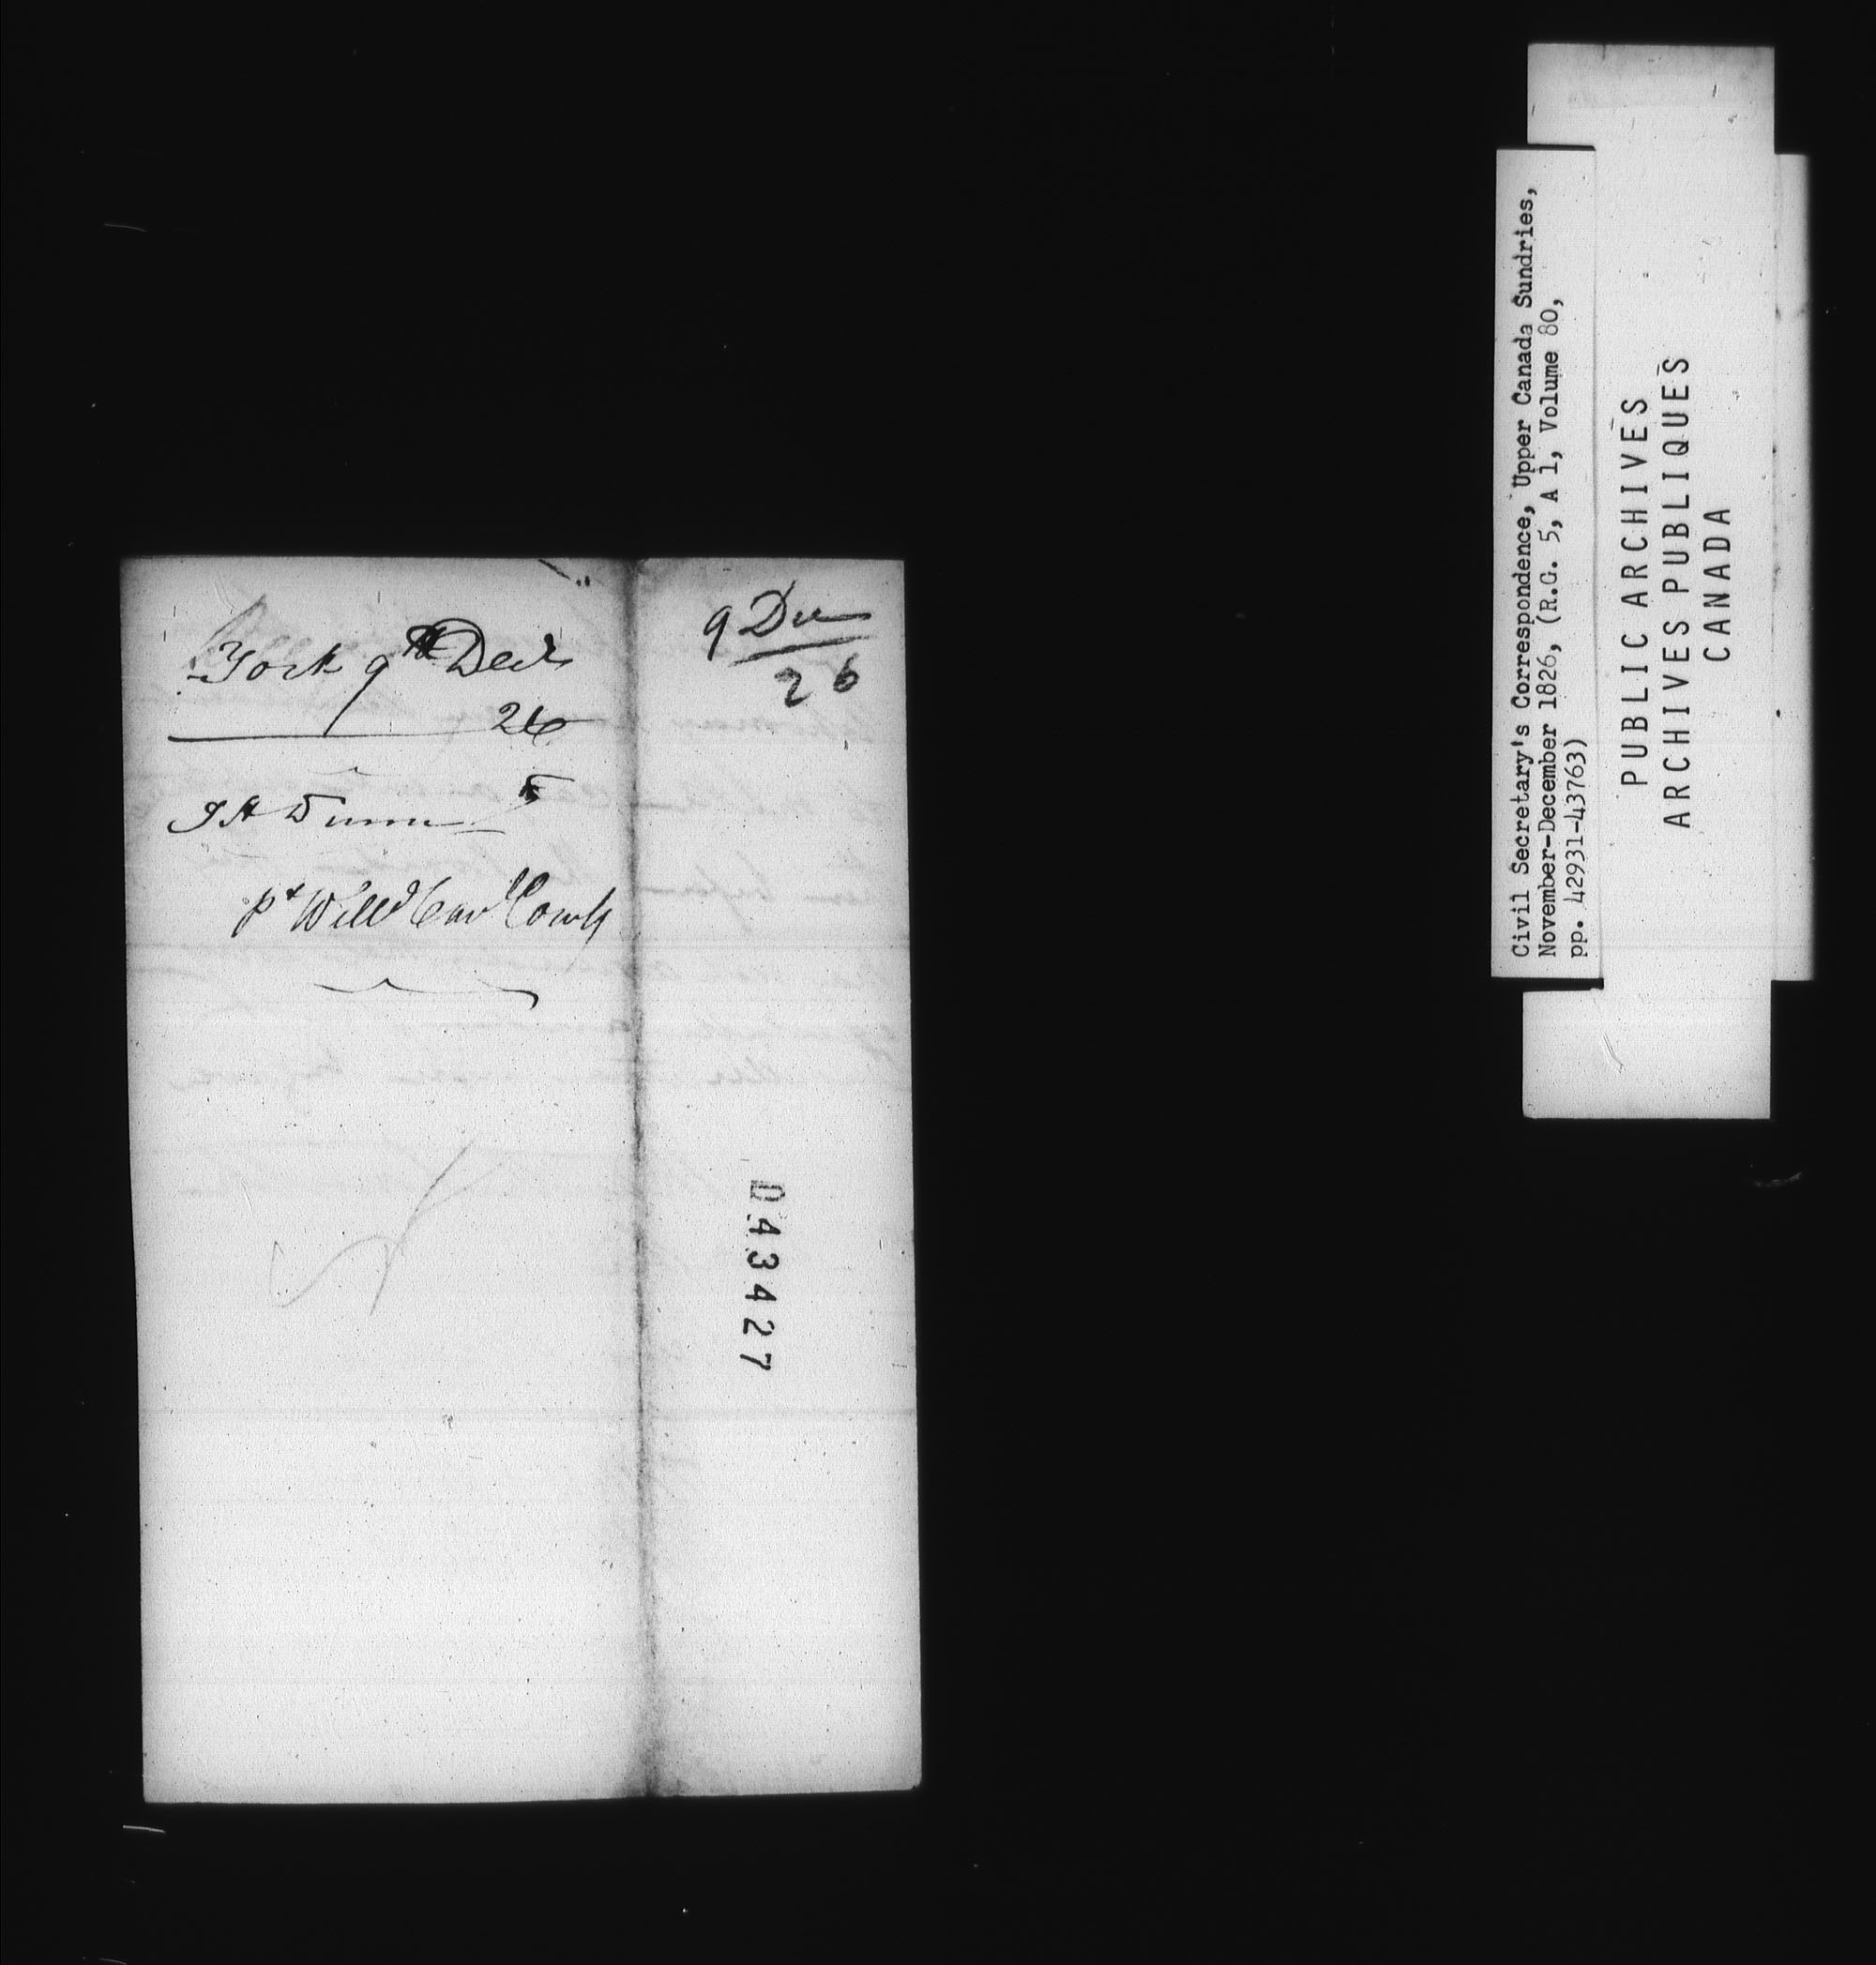 York 9th Decr
26
J H Dunn
pr Well'd Can'l Comp'y
9 Dec
26
043427
Civil Secretary's Correspondence, Upper Canada Sundries,
November-December 1826, (R.G. 5, A 1, Volume 80,
pp. 42931-43763)
PUBLIC ARCHIVES
ARCHIVES PUBLIQUES
CANADA